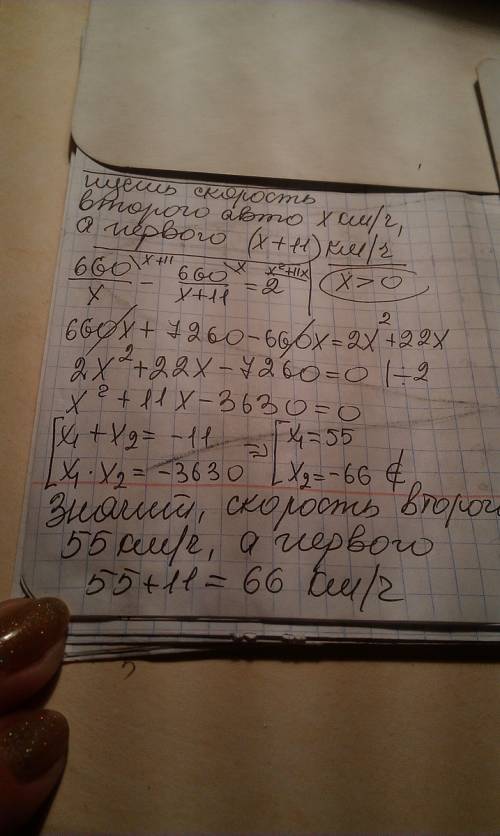 пусть скорость
второго авто x км/ч,
а первого (x+11) км/ч
660/x \x+11 - 660/(x+11) \x = 2 \x²+11x | x>0
660x + 7260 - 660x = 2x² + 22x
2x² + 22x - 7260 = 0 | ÷2
x² + 11x - 3630 = 0
[ x₁ + x₂ = -11 => [ x₁ = 55
[ x₁ · x₂ = -3630 [ x₂ = -66 ∉
Значит, скорость второг
55 км/ч, а первого
55+11 = 66 км/ч